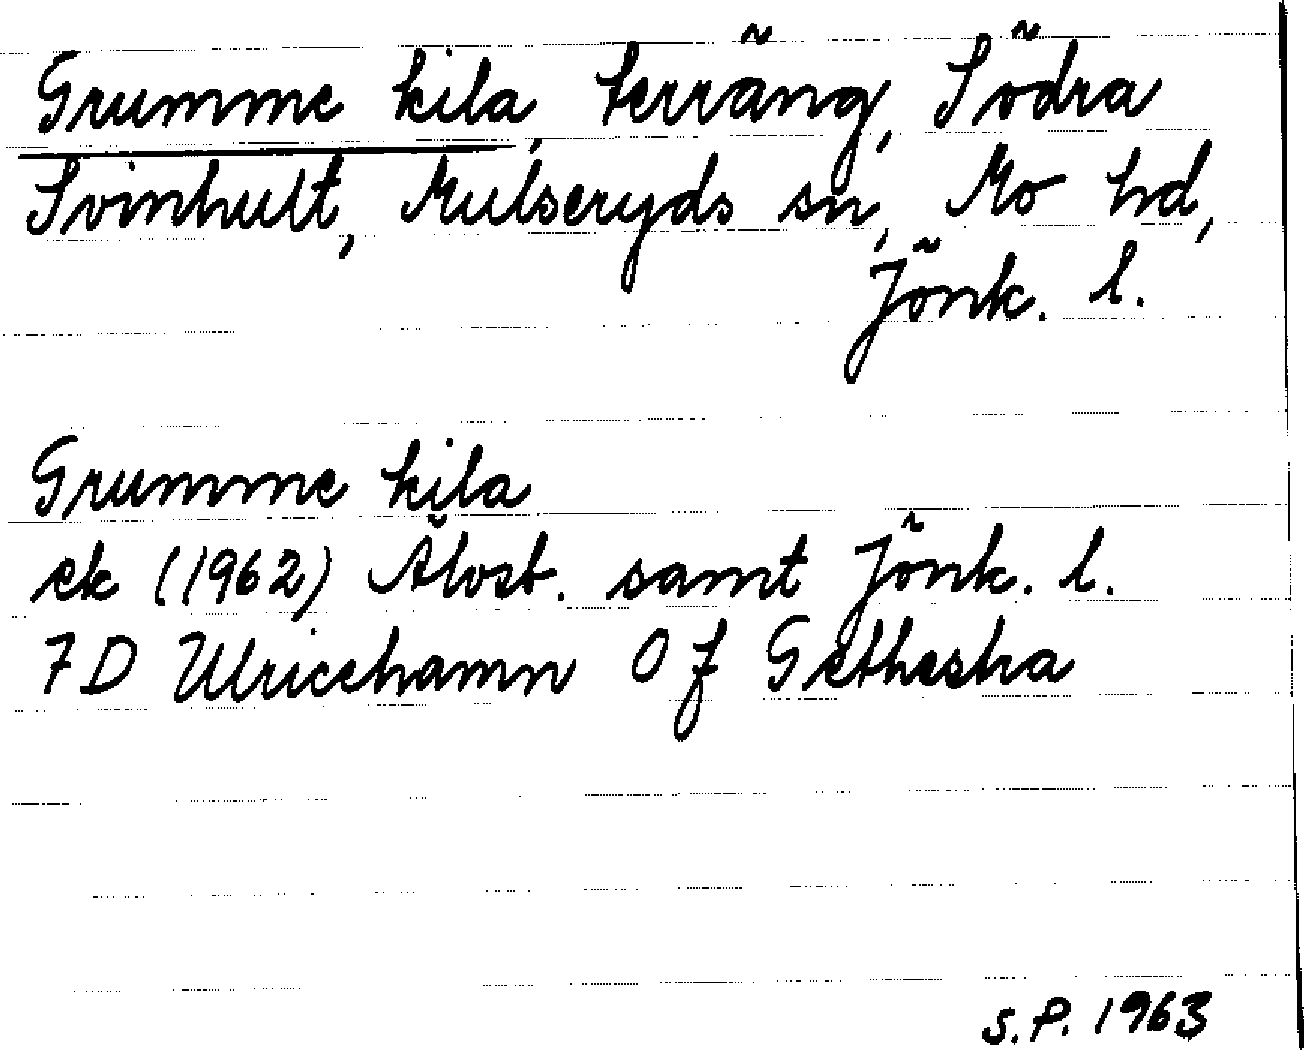 Grumme kila, terräng, Södra
Svinhult, Mulseryds sn, Mo hd,
Jönk. l.
Grumme kila
ek (1962) Älvsb. samt Jönk. l.
7D Ulricehamn 0 f Gethestra
S.P. 1963